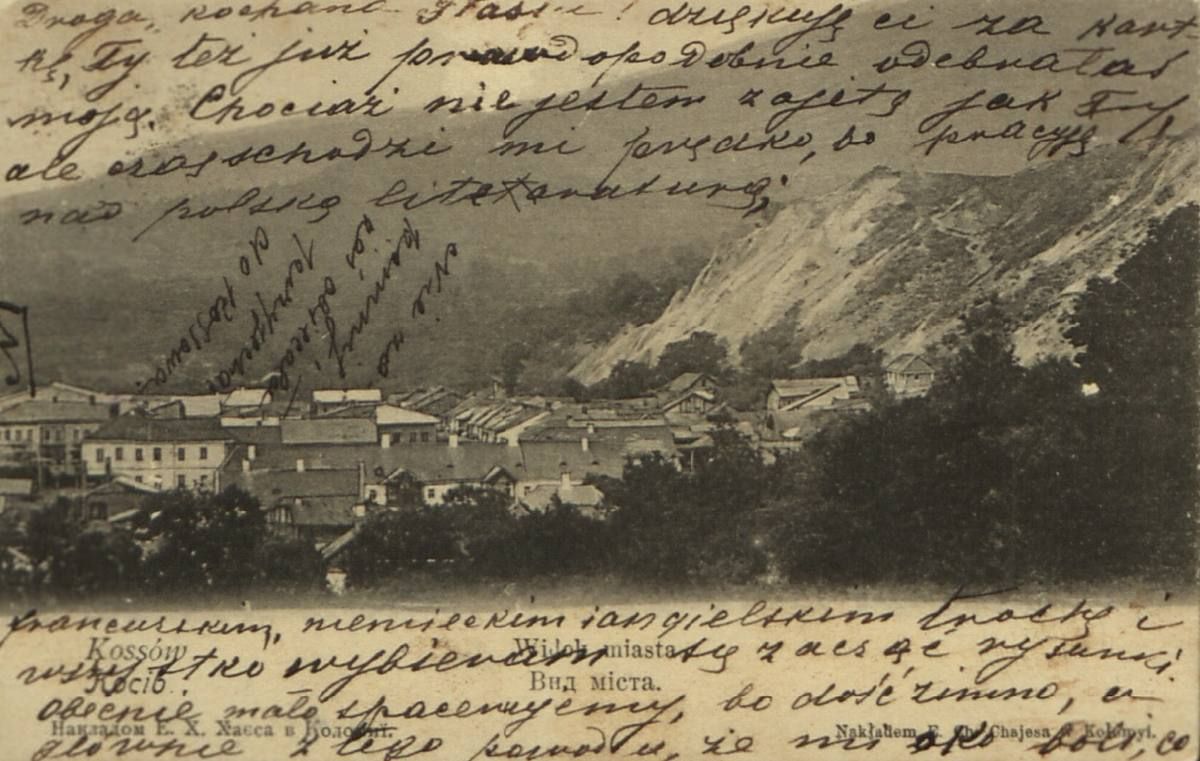 Droga, kochana Stasiu! dziękuję ci za kart-
kę, Ty też już prawdopodobnie odebrałaś
moję. Chociaż nie jestem zajętą jak Ty,
ale czas schodzi mi prędko, bo pracuję
nad polską literaturą,
francuskim, niemieckim i angielskim trochę i
wszystko wybieram się zacząć rysunki
obecnie mało spacerujemy, bo dość zimno, a
głównie z tego powodu, że mi oko boli, co
do Kossowa
Nie
Kossów
Косів.
Widok miasta
Вид міста.
Накладом Е. Х. Хаєса в Коломиї.
Nakładem E. Ch. Chajesa w Kołomyi.